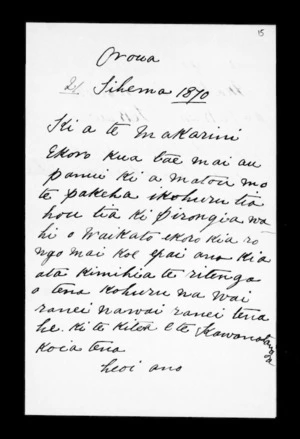 15
Orowa
21 Tihema 1870
Ki a te Makarini
Ekoro kua tae mai au
panui ki a matou mo
te pakeha ikohuru tia
hou tia ki Pirongia wa
hi o Waikato ekoro kia ro
ngo mai koe e pai ana kia
ata kimihia te ritenga
o tena kohuru na wai
ranei nawai ranei tena
he. Ki te kitea e te Kawanatanga
koia tena
heoi ano